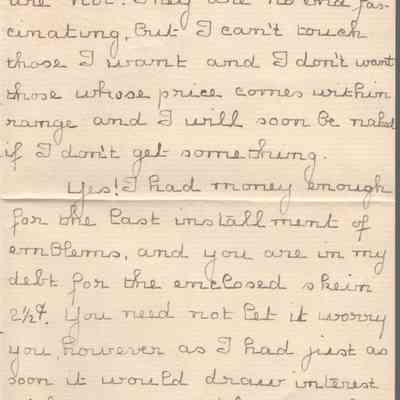 are not. They are no end fas-
cinating, but I can't touch
those I want and I don't want
those whose price comes within
range and I will soon be naked
if I don't get something.
Yes! I had money enough
for the last installment of
emblems, and you are in my
debt for the enclosed skein
2½¢. You need not let it worry
you, however as I had just as
soon it would draw interest